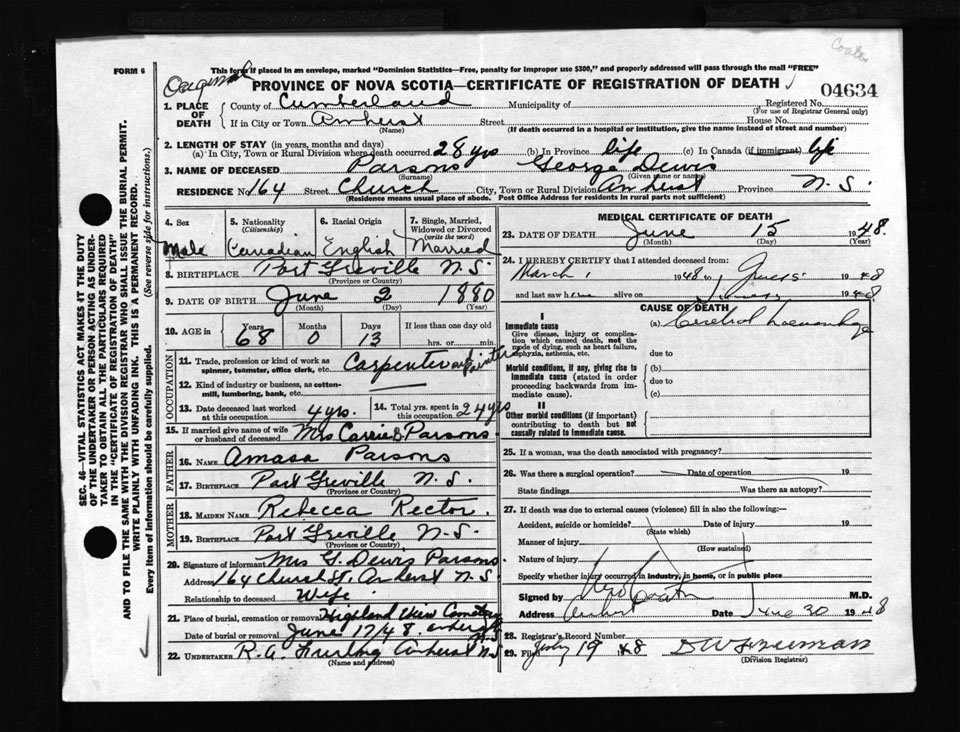 Coates
FORM 6
This form if placed in an envelope, marked "Dominion Statistics—Free, penalty for improper use $300," and properly addressed will pass through the mail "FREE"
Original
PROVINCE OF NOVA SCOTIA—CERTIFICATE OF REGISTRATION OF DEATH
04634
1. PLACE OF DEATH
County of Cumberland Municipality of Registered No.
(For use of Registrar General only)
If in City or Town Amherst Street House No.
(Name) (If death occurred in a hospital or institution, give the name instead of street and number)
2. LENGTH OF STAY (in years, months and days)
(a) In City, Town or Rural Division where death occurred 28 yrs (b) In Province life (c) In Canada (if immigrant) life
3. NAME OF DECEASED Parsons George Dewis
(Surname) (Given name or names)
RESIDENCE No 164 Street Church City, Town or Rural Division Amherst Province N.S.
(Residence means usual place of abode. Post Office Address for residents in rural parts not sufficient)
4. Sex
Male
5. Nationality
(Citizenship)
Canadian
6. Racial Origin
English
7. Single, Married, Widowed or Divorced
(write the word)
Married
8. BIRTHPLACE Port Greville N.S.
(Province or Country)
9. DATE OF BIRTH June 2 1880
(Month) (Day) (Year)
10. AGE in
Years Months Days If less than one day old
68 0 13 hrs. or min.
OCCUPATION
11. Trade, profession or kind of work as
spinner, teamster, office clerk, etc. Carpenter and Painter
12. Kind of industry or business, as cotton-
mill, lumbering, bank, etc.
13. Date deceased last worked
at this occupation 4 yrs.
14. Total yrs. spent in
this occupation 24 yrs
15. If married give name of wife
or husband of deceased Mrs Carrie D Parsons.
FATHER
16. NAME Amasa Parsons
17. BIRTHPLACE Port Greville N.S.
(Province or Country)
MOTHER
18. MAIDEN NAME Rebecca Rector
19. BIRTHPLACE Port Greville N.S.
(Province or Country)
20. Signature of informant Mrs G. Dewis Parsons
Address 164 Church St. Amherst N.S
Relationship to deceased Wife
21. Place of burial, cremation or removal Highland View Cemetery
Date of burial or removal June 17/48. Amherst N.S
22. UNDERTAKER R.A. Furlong Amherst N.S
(Name and address)
MEDICAL CERTIFICATE OF DEATH
23. DATE OF DEATH June 15 1948.
(Month) (Day) (Year)
24. I HEREBY CERTIFY that I attended deceased from:
March 1948 to June 15 1948
and last saw him alive on 1948
CAUSE OF DEATH
I
Immediate cause
Give disease, injury or complication which caused death, not the mode of dying, such as heart failure, asphyxia, asthenia, etc.
(a) Cerebral haemorrhage
due to
Morbid conditions, if any, giving rise to immediate cause (stated in order proceeding backwards from immediate cause).
(b)
due to
(c)
II
Other morbid conditions (if important) contributing to death but not causally related to immediate cause.
25. If a woman, was the death associated with pregnancy?
26. Was there a surgical operation? Date of operation 19
State findings Was there an autopsy?
27. If death was due to external causes (violence) fill in also the following:—
Accident, suicide or homicide? Date of injury 19
(State which)
Manner of injury
(How sustained)
Nature of injury
Specify whether injury occurred in industry, in home, or in public place
Signed by M.D.
Address Amherst Date June 30 1948
28. Registrar's Record Number
29. Filed July 19 48 D W Freeman
(Division Registrar)
SEC. 46—VITAL STATISTICS ACT MAKES IT THE DUTY
OF THE UNDERTAKER OR PERSON ACTING AS UNDER-
TAKER TO OBTAIN ALL THE PARTICULARS REQUIRED
IN THE "CERTIFICATE OF REGISTRATION OF DEATH"
AND TO FILE THE SAME WITH THE DIVISION REGISTRAR WHO SHALL ISSUE THE BURIAL PERMIT.
WRITE PLAINLY WITH UNFADING INK. THIS IS A PERMANENT RECORD.
Every item of information should be carefully supplied. (See reverse side for instructions.)